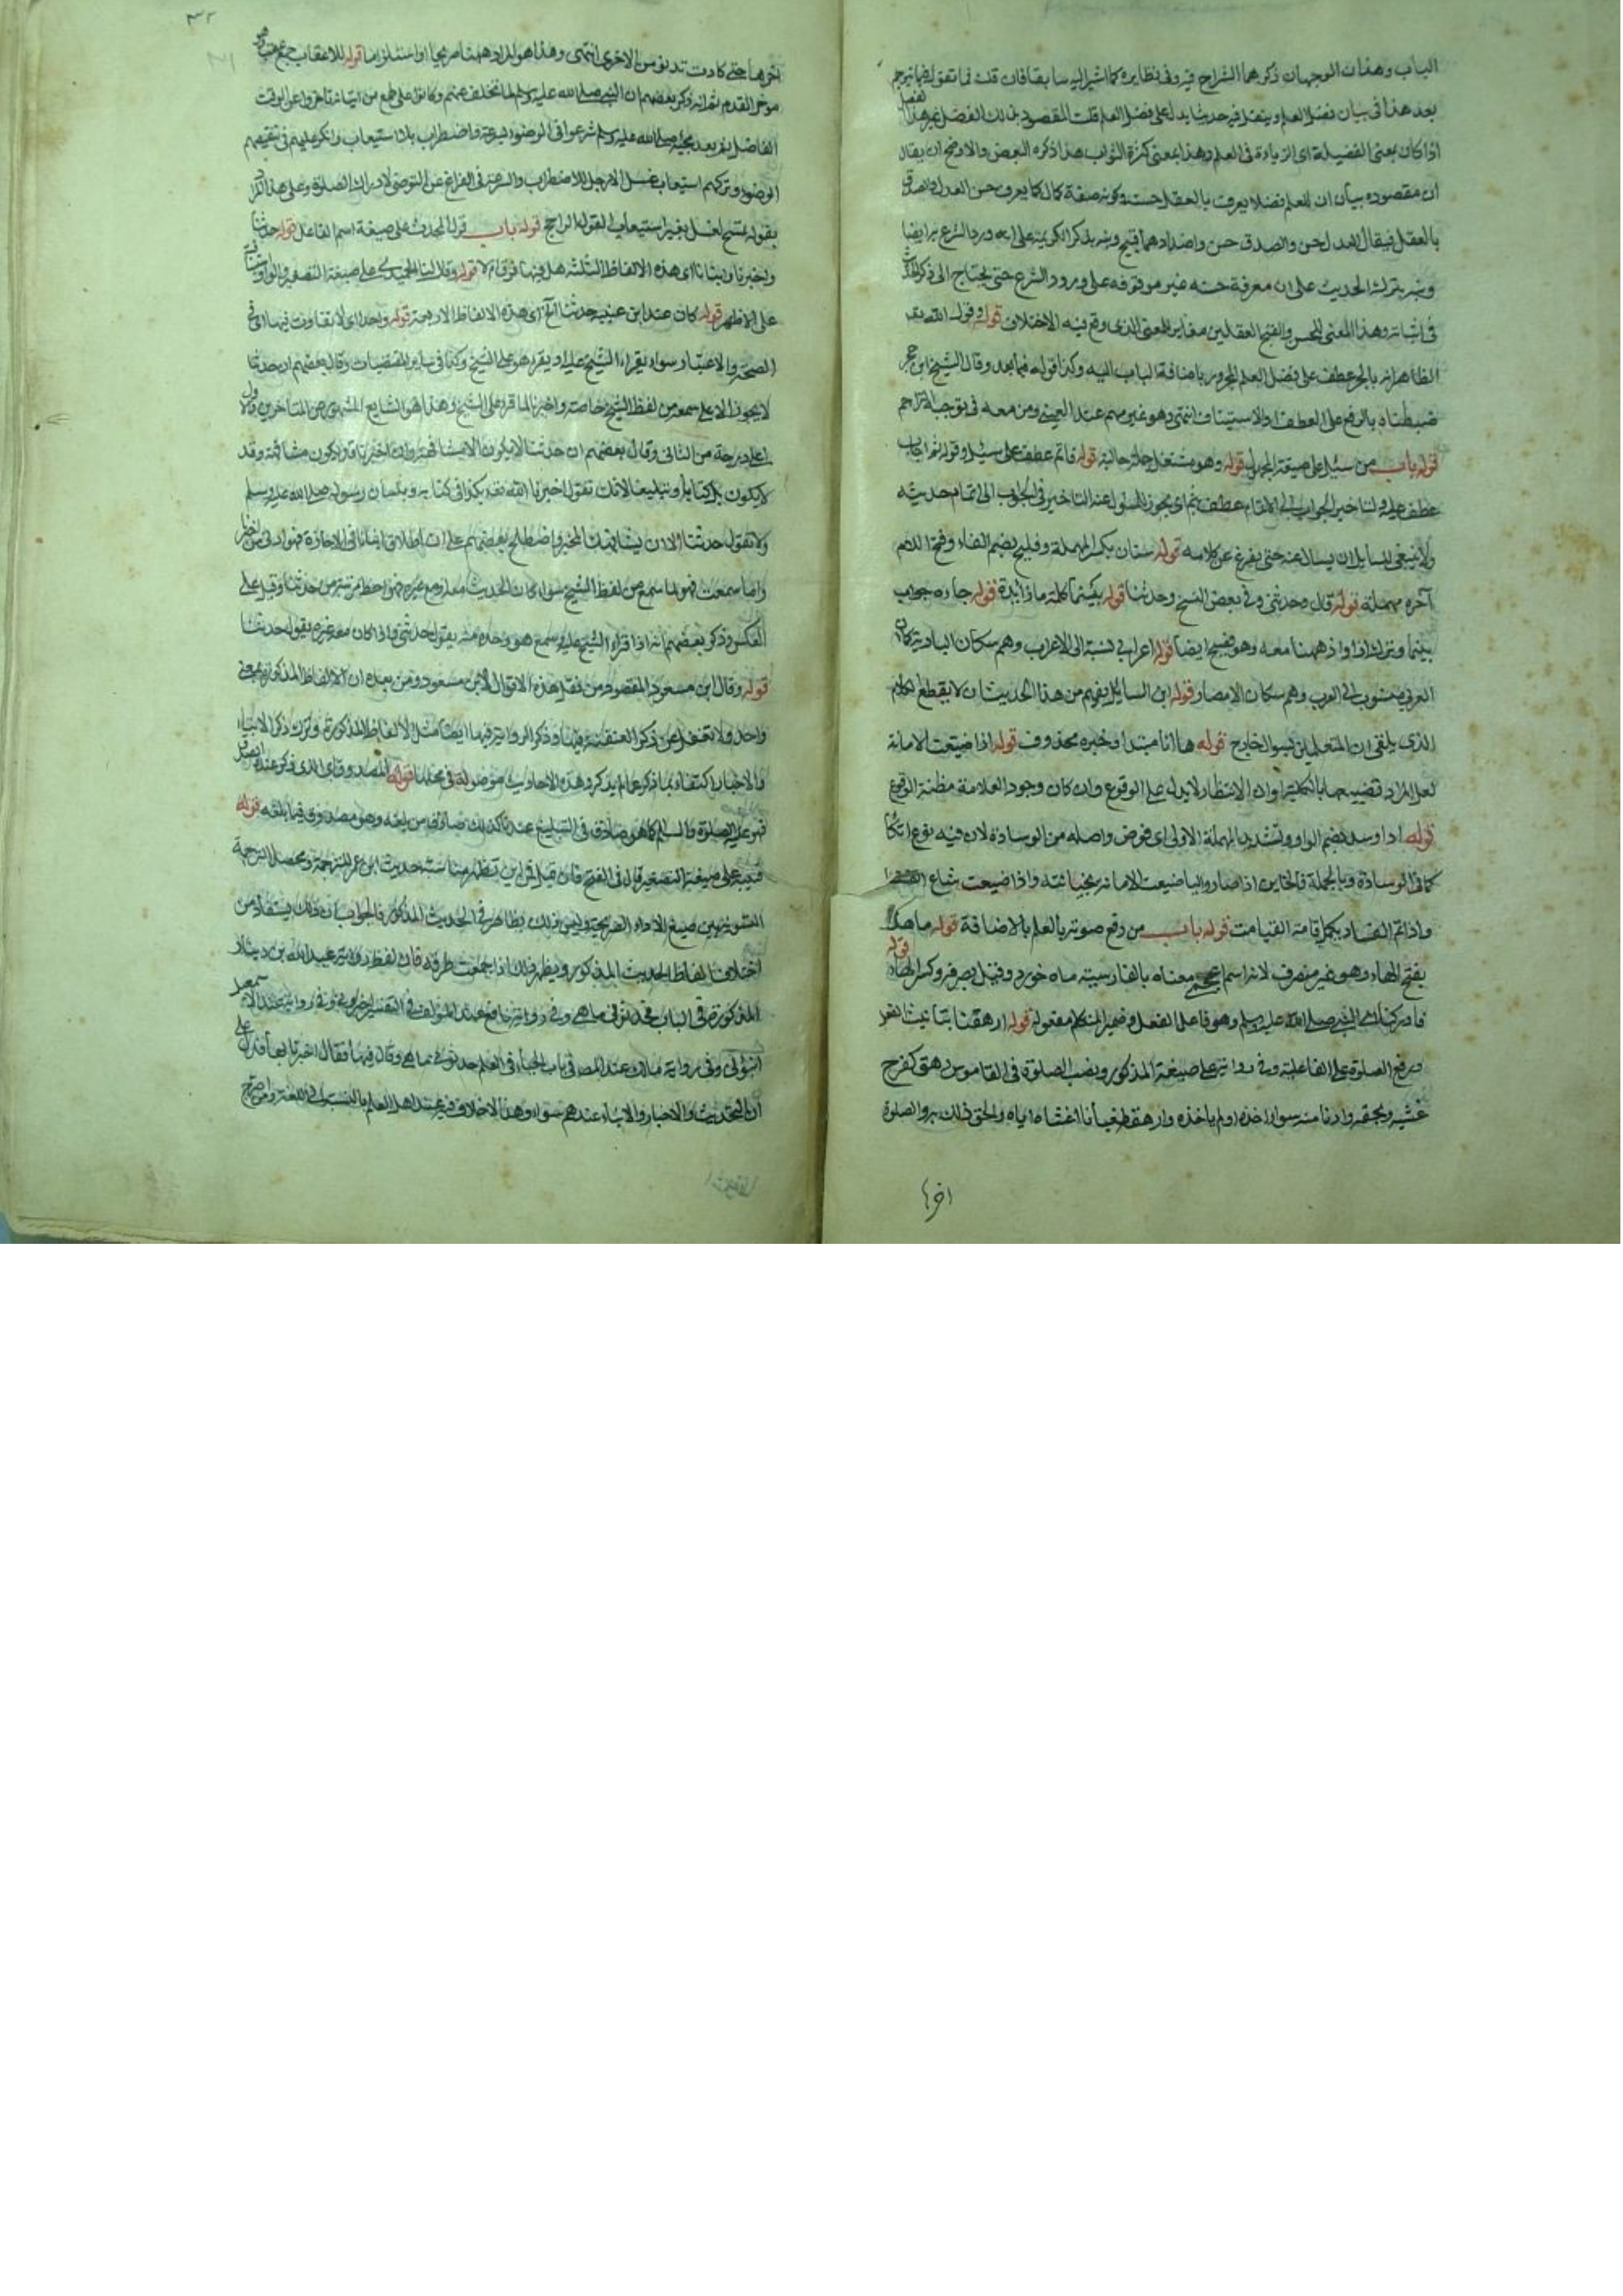 الباب وهذان الوجهان ذكرهما الشراح فيه وفي نظايره كما اشير اليه سابقا فان قلت فما تقول فيما ترجم
بعد هذا في بيان فضل العلم وينقل فيه حديثا يدل على فضل العلم قلت المقصود بذلك الفضل غير هذا الفضل
اذا كان بمعنى الفضيلة اي الزيادة في العلم وهذا بمعنى كثرة الثواب هذا ذكره البعض والاوضح ان يقال
ان مقصوده بيان ان للعلم فضلا يعرف بالعقل حسنه وكونه صفة كمال كما يعرف حسن العدل والصدق
بالعقل فيقال العدل حسن والصدق حسن واضدادهما قبيح ونبه بذكر الكريمة على انه ورد الشرع به ايضا
ونبه بترك الحديث على ان معرفة حسنه غير موقوفة على ورود الشرع حتى يحتاج الى ذكر الحديث
في اثباته وهذا المعنى للحسن والقبح العقليين مغاير للمعنى الذي وقع فيه الاختلاف قوله وقول الله تعالى
الظاهر انه بالجر عطف على فضل العلم المجرور باضافة الباب اليه وكذا قوله فيما بعد وقال الشيخ ابن حجر
ضبطناه بالرفع على العطف او الاستيناف انتهى وهو غير مهم عند العيني ومن معه في توجيه التراجم
قوله باب من سئل على صيغة المجهول قوله وهو مشتغل جملة حالية قوله فاتم عطف على سئل وقوله ثم اجاب
عطف عليه ولتاخير الجواب الى الاتمام عطف بثم اي يجوز للمسؤل عنه التاخير في الجواب الى اتمام حديثه
ولا ينبغي للسايل ان يسال عنه حتى يفرغ عن كلامه قوله سنان بكسر المهملة وفليح بضم الفاء وفتح اللام
آخره مهملة قوله قال وحدثني وفي بعض النسخ وحدثنا قوله بينما كلمة ما زايدة قوله جاءه جواب
بينما وترك اذا واذ ههنا معه وهو فصيح ايضا قوله اعرابي نسبة الى الاعراب وهم سكان البادية كان
العربي منسوب الى العرب وهم سكان الامصار قوله اين السايل يفهم من هذا الحديث ان لا يقطع الكلام
الذي يلقي ان المتعلمين بسوال خارج قوله ها انا مبتدا وخبره محذوف قوله اذا ضيعت الامانة
لعل المراد تضييعها بالكلية وان الانتظار لا يدل على الوقوع وان كان وجود العلامة مظنة الوقوع
قوله اذا وسد بضم الواو وتشديد المهملة الاولى اي فوض واصله من الوسادة لان فيه نوع اتكا
كما في الوسادة وبالجملة فالخاين اذا صار واليا ضيعت الامانة بخيانته واذا ضيعت شاع الفساد
واذا تم الفساد بكمل اقامة القيامت قوله باب من رفع صوته بالعلم بالاضافة قوله ماهك
بفتح الهاء وهو غير منصرف لانه اسم عجمي معناه بالفارسية ماه خورد وقيل بصرفه وكسر الهاء قوله
فادركنا اي النبي صلى الله عليه وسلم وهو فاعل الفعل وضمير المتكلم مفعوله قوله ارهقنا بتانيث الفعل
ورفع الصلوة على الفاعلية وفي رواية على صيغة المذكور ونصب الصلوة في القاموس رهق كفرح
غشيه ولحقه او دنا منه سواء اخذه او لم ياخذه وارهقه طغيانا اغشاه اياه والحق ذلك به والصلوة
اخرها
٣٢
اخرها حتى كادت تدنو من الاخرى انتهى وهذا هو المراد ههنا صريحا او استلزاما قوله للاعقاب جمع عقب وهو
موخر القدم ثم انه ذكر بعضهم ان النبي صلى الله عليه وسلم لما تخلف عنهم وكانوا على طمع من اتيانه تاخروا عن الوقت
الفاضل ثم بعد مجيئه صلى الله عليه وسلم شرعوا في الوضوء بسرعة واضطراب بلا استيعاب وانكر عليهم في نقيصهم
الوضوء وتركهم استيعاب غسل الارجل للاضطراب والسرعة في الفراغ عن التوضي لادراك الصلوة وعلى هذا المراد
بقوله نمسح نغسل بغير استيعاب لقوله الراجح قوله باب قول المحدث على صيغة اسم الفاعل قوله حدثنا
واخبرنا وانبانا اي هذه الالفاظ الثلثة هل فيها فرق ام لا قوله وقال لنا الحميدي على صيغة التصغير والواو استينافية
على الاظهر قوله كان عند ابن عيينة حدثنا الخ اي هذه الالفاظ الاربعة قوله واحد اي لا تفاوت فيها اي في
الصحة والاعتبار سواء يقراء الشيخ عليه او يقرء هو على الشيخ وكذا في ساير المقتضيات وقال بعضهم ان حدثنا
لا يجوز الا على سمعه من لفظ الشيخ خاصة واخبرنا لما قرء على الشيخ وهذا هو الشايع المشهور عن المتاخرين والاول
اعلى درجة من الثاني وقال بعضهم ان حدثنا لا يكون الا مشافهة وان اخبرنا قد يكون مشافهة وقد
لا يكون بل كتابا وتبليغا لانك تقول اخبرنا الله تعالى بكذا في كتابه وبلسان رسوله صلى الله عليه وسلم
ولا تقول حدثنا الا ان يشافهك المخبر واصطلح بعضهم على ان اطلاق انبانا في الاجازة فهو ادنى من اخبرنا
واما سمعت فهو لما سمع من لفظ الشيخ سواء كان الحديث معه او مع غيره فهو احط مرتبة من حدثنا وقيل على
العكس وذكر بعضهم انه اذا قراء الشيخ عليه وسمع هو وحده منه يقول حدثني واذا كان معه غيره يقول حدثنا
قوله وقال ابن مسعود المقصود من نقل هذه الاقوال لابن مسعود ومن بعده ان الالفاظ المذكورة بمعنى
واحد ولا تغفل عن ذكر العنعنة فيها وذكر الرواية فيها ايضا مثل الالفاظ المذكورة وترك ذكر الانباء
والاخبار اكتفاء بما ذكر عما لم يذكر وهذه الاحاديث موصولة في محلها قوله المصدوق اي الذي ذكر عنده الصدق
فهو عليه الصلوة والسلام كما هو صادق في التبليغ عنه تاكد لك صادق من بلغه وهو مصدوق فيما بلغه قوله
فيه على صيغة التصغير قال في الفتح فان قيل فمن اين تظهر مناسبة حديث ابن عمر للترجمة ومحصل الترجمة
التسوية بين صيغ الاداء الصريحة وليس ذلك بظاهر في الحديث المذكور فالجواب ان ذلك يستفاد من
اختلاف الفاظ الحديث المذكور ويظهر ذلك اذا اجتمعت طرقه فان لفظ رواية عبد الله بن دينار
المذكورة في الباب فحدثوني ما هي وفي رواية نافع عند المؤلف في التفسير اخبروني وفي رواية عند الاسمعيلي
انبؤني وفي رواية مالك عند المصنف في باب الحياء في العلم حدثوني ما هي وقال فيها فقال اخبرنا بها فدل على
ان التحديث والاخبار والانباء عندهم سواء وهذا لا خلاف فيه عند اهل العلم بالنسبة الى اللغة ومن اصرح